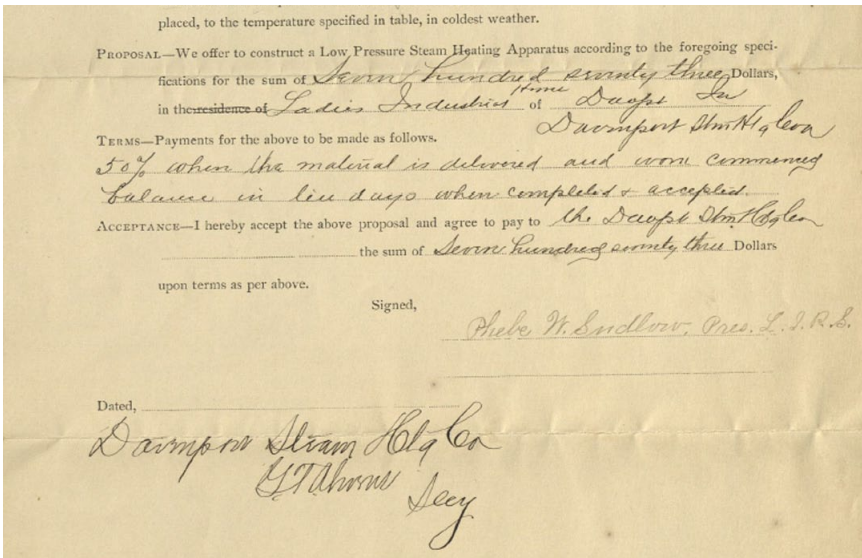 placed, to the temperature specified in table, in coldest weather.
PROPOSAL—We offer to construct a Low Pressure Steam Heating Apparatus according to the foregoing speci-
fications for the sum of Seven hundred seventy three Dollars,
in the residence of Ladies Industrial Home of Davpt Ia
Davenport Stm Htg Co
TERMS—Payments for the above to be made as follows.
50% when the material is delivered and work commenced
balance in ten days when completed & accepted.
ACCEPTANCE—I hereby accept the above proposal and agree to pay to the Davpt Stm Htg Co
the sum of Seven hundred seventy three Dollars
upon terms as per above.
Signed,
Phebe W. Sudlow, Pres. L. I. R. S.
Dated,
Davenport Steam Htg Co
Secy